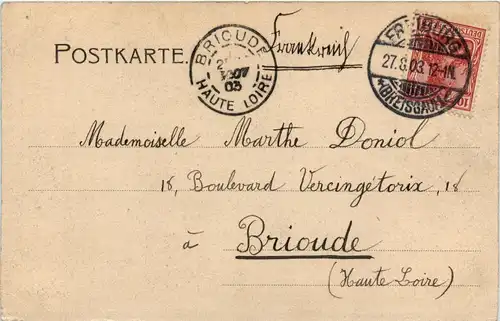 POSTKARTE.
Frankreich
BRIOUDE
03
HAUTE LOIRE
FREIBURG
27.8.03.12-1N.
(BREISGAU)
10
Mademoiselle Marthe Doniol
18, Boulevard Vercingétorix, 18
à
Brioude
(Haute Loire)